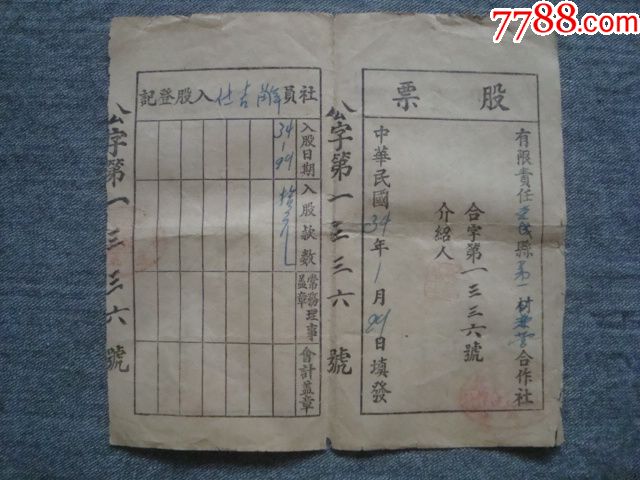 7788.com
中国收藏热线
股票
有限責任 縣第一村兼營合作社
合字第一三三六號
介紹人
中華民國34年1月29日填發
公字第一三三六號
社員 吉 入股登記
入股日期
入股款數
常務理事蓋章
會計蓋章
34
1
29
公字第一三三六號